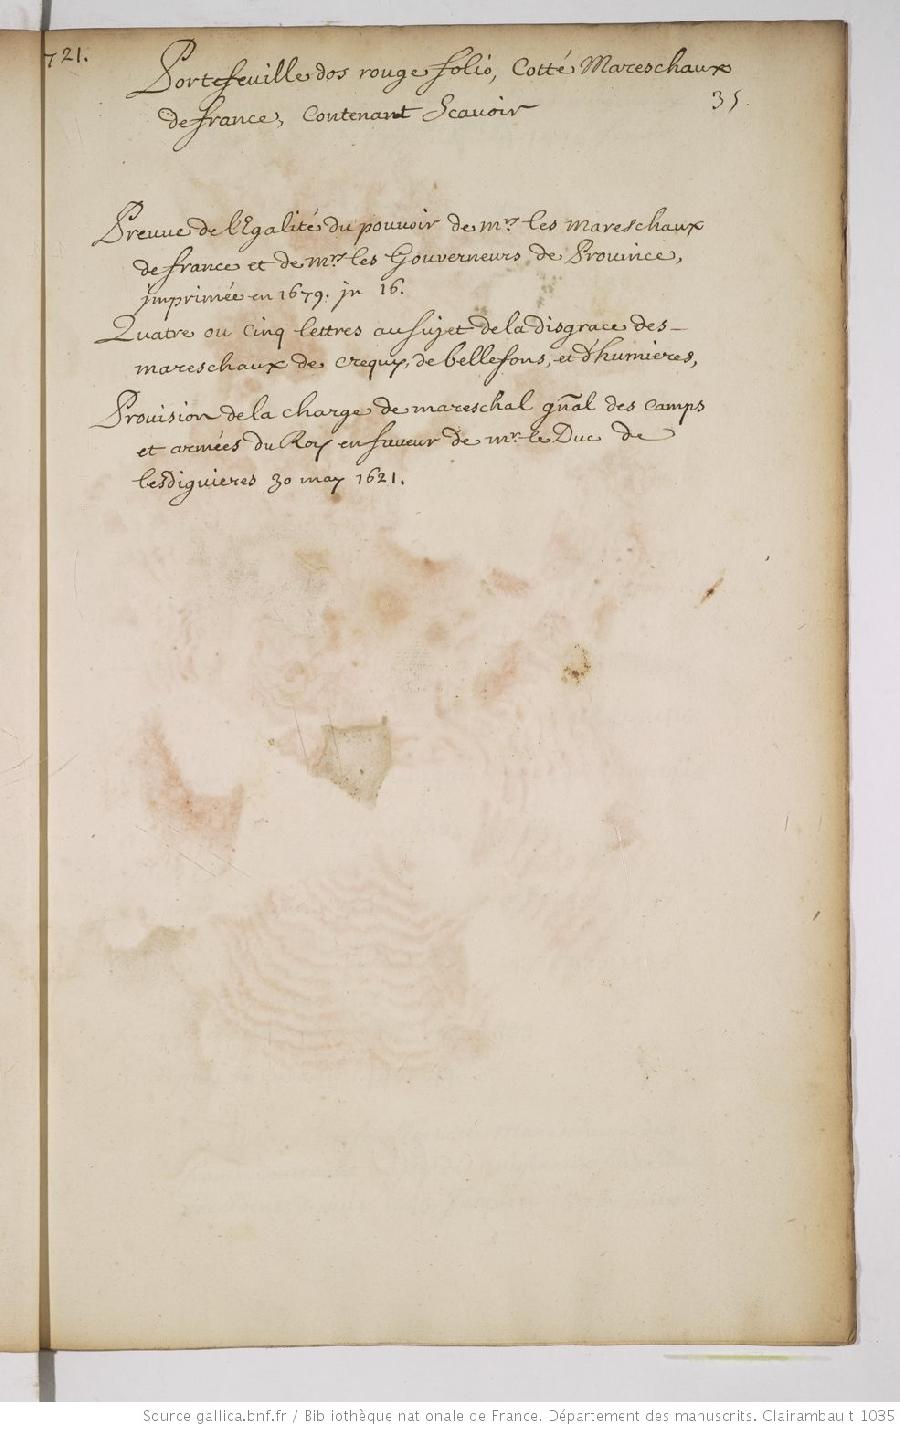 721.
Portefeuille dos rouge folio, Cotté Mareschaux
35
de france, Contenant Scavoir
Preuue de l'Egalité du pouuoir de mrs les mareschaux
de france et de mrs les Gouverneurs de Prouince,
jmprimée en 1679. jn 16.
Quatre ou Cinq lettres au sujet de la disgrace des
mareschaux de Crequy, de bellefons, et d'humieres,
Prouision de la charge de mareschal gñal des Camps
et armées du Roy en faveur de mr le Duc de
lesdiguieres 30 may 1621.
Source gallica.bnf.fr / Bibliothèque nationale de France. Département des manuscrits. Clairambault 1035